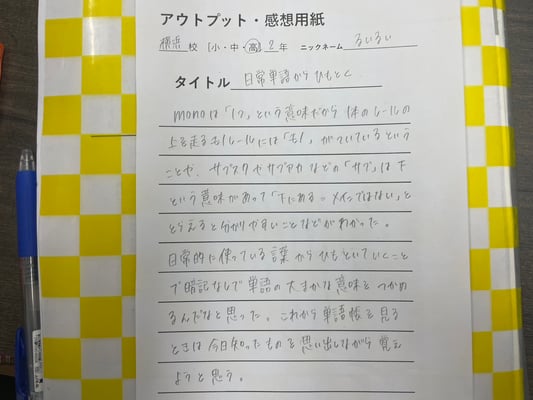 アウトプット・感想用紙
横浜 校 [小・中・高] 2 年 ニックネーム るいるい
タイトル 日常単語からひもとく
monoは「1つ」という意味だから1本のレールの
上を走るモノレールには「モノ」がついているという
ことや、サブスクやサブアカなどの「サブ」は下
という意味があって「下にある。メインではない」と
とらえると分かりやすいことなどがわかった。
日常的に使っている言葉からひもといていくこと
で暗記なしで単語の大まかな意味をつかめ
るんだなと思った。これから単語帳を見る
ときは今日知ったものを思い出しながら覚え
ようと思う。